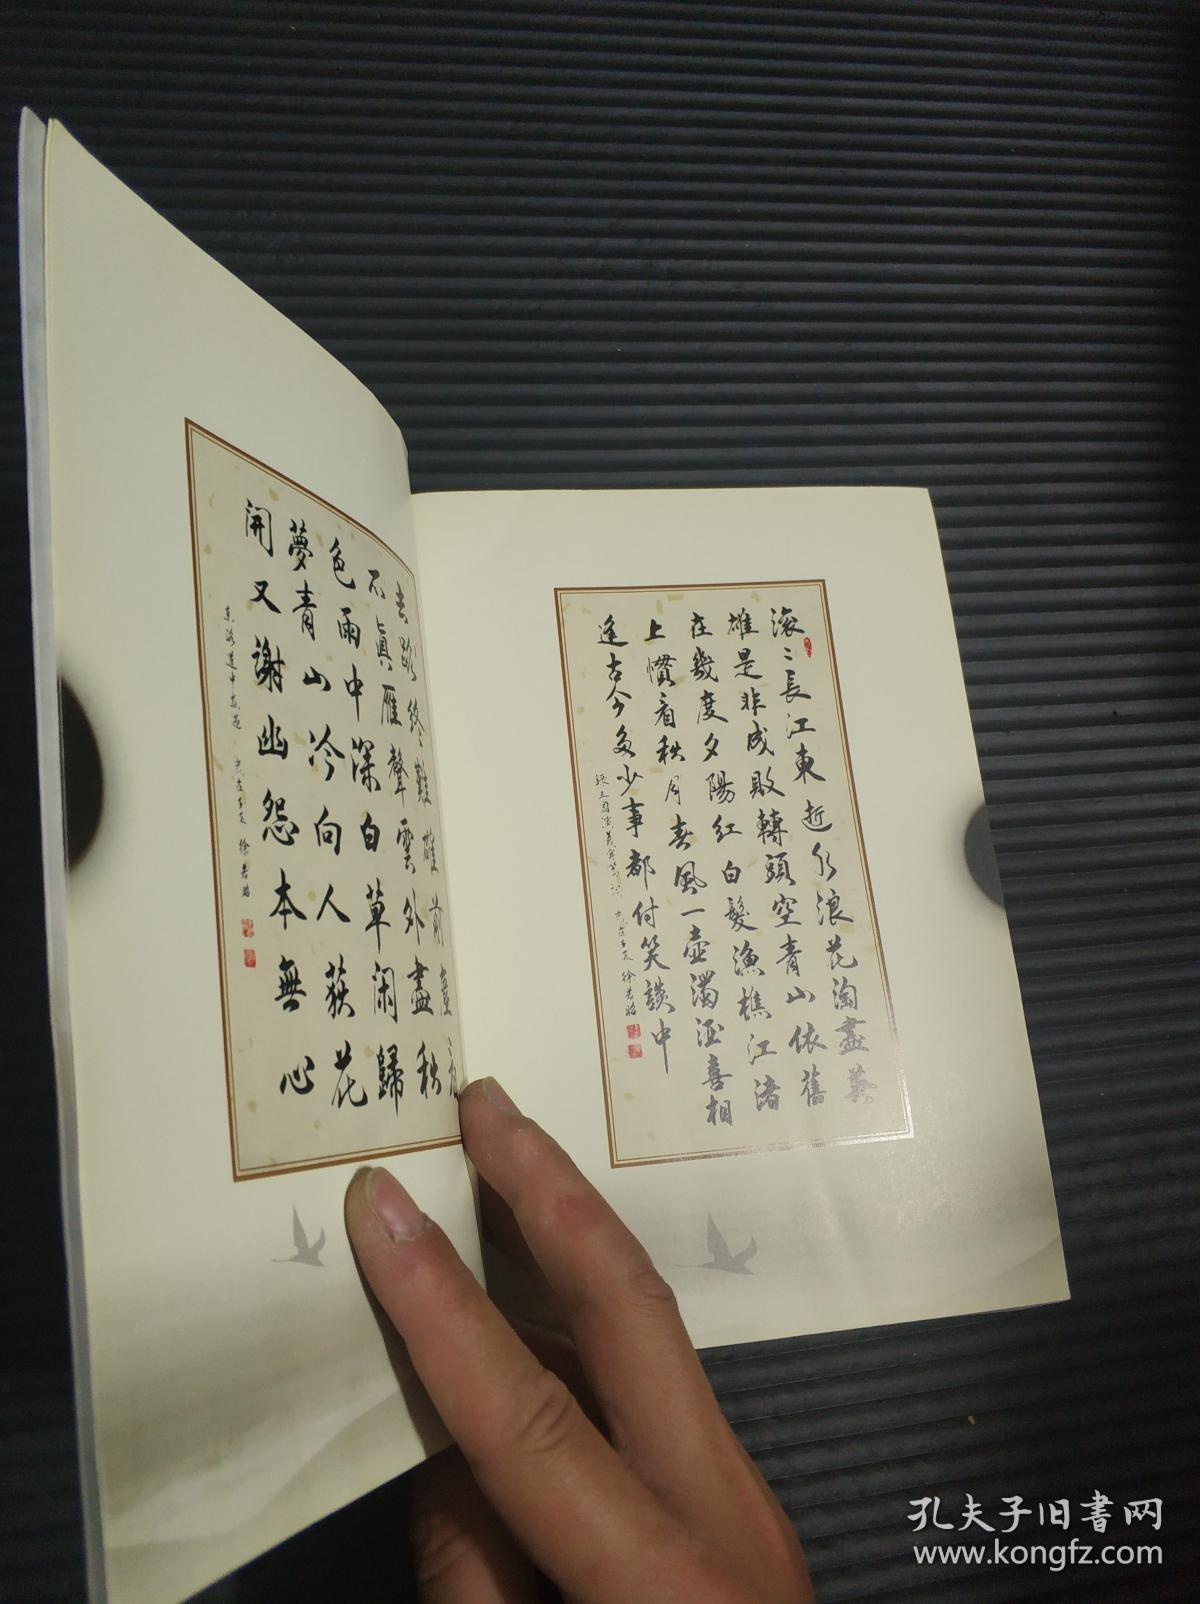 去歇終難離前塵
不真雁聲雲外盡秋
色雨中深白草閑歸
夢青山冷向人荻花
開又謝幽怨本無心
滚〻長江東逝水浪花淘盡英
雄是非成敗轉頭空青山依舊
在幾度夕陽紅白髮漁樵江渚
上慣看秋月春風一壺濁酒喜相
逢古今多少事都付笑談中
孔夫子旧書网
www.kongfz.com